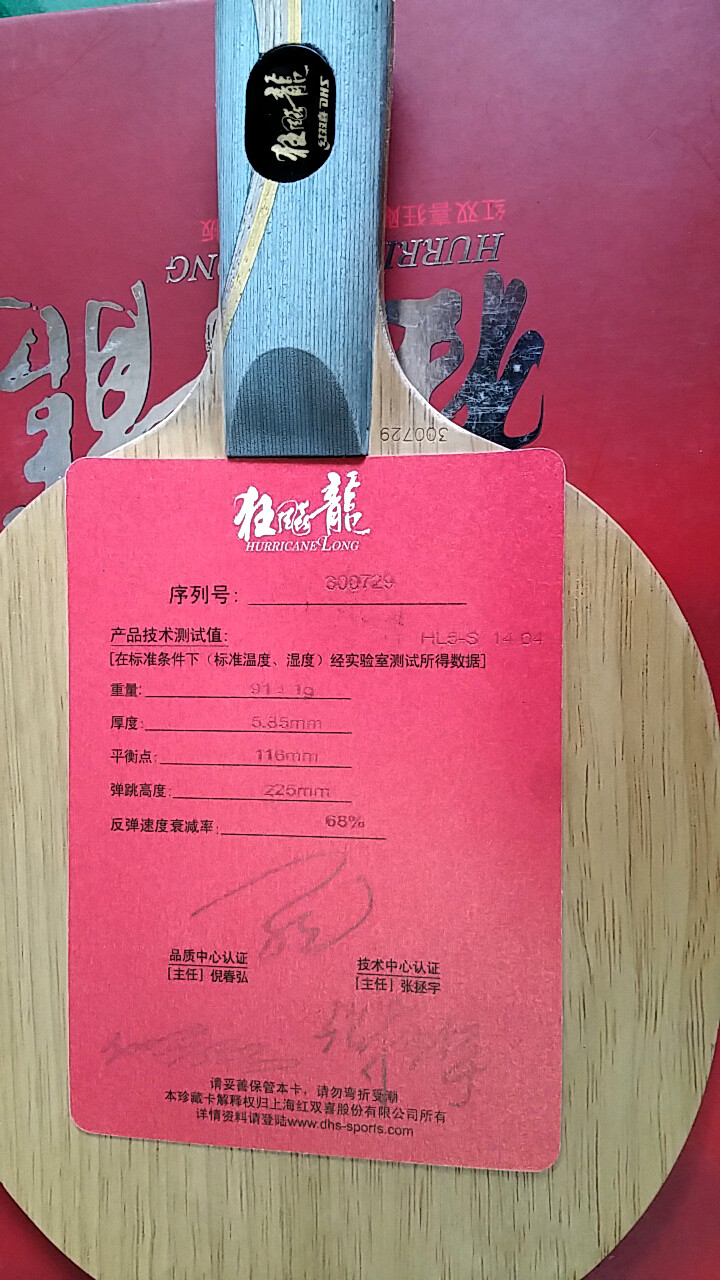 狂飚龍
红双喜 DHS
红双喜狂飚
板
HURRI
ONG
300729
狂飚龍
HURRICANE LONG
序列号: 300729
产品技术测试值: HL5-S 14 04
[在标准条件下（标准温度、湿度）经实验室测试所得数据]
重量:
厚度: 5.85mm
平衡点: 116mm
弹跳高度: 225mm
反弹速度衰减率: 68%
品质中心认证
[主任] 倪春弘
技术中心认证
[主任] 张拯宇
请妥善保管本卡，请勿弯折受潮
本珍藏卡解释权归上海红双喜股份有限公司所有
详情资料请登陆www.dhs-sports.com